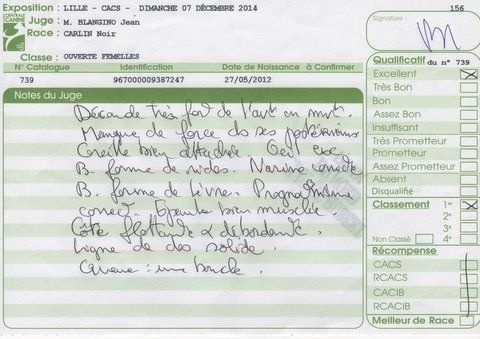 L'CENTRALE CANINE
Exposition : LILLE - CACS - DIMANCHE 07 DÉCEMBRE 2014
156
Juge : M. BLANGINO Jean
Race : CARLIN Noir
Signature :
Classe : OUVERTE FEMELLES
N° Catalogue Identification Date de Naissance à Confirmer
739 967000009387247 27/05/2012
Notes du Juge
très fort de l'
Manque de force ds ses postérieurs
Oreille bien attachée Oeil
B. forme de rides. Narine
B. forme de lèvre. Prognathisme
correct. Epaule bien musclée.
Côte flottante débordante.
Ligne de dos solide.
Queue : une boucle.
Qualificatif du n° 739
Excellent
Très Bon
Bon
Assez Bon
Insuffisant
Très Prometteur
Prometteur
Assez Prometteur
Absent
Disqualifié
Classement 1er
2e
3e
Non Classé 4e
Récompense
CACS
RCACS
CACIB
RCACIB
Meilleur de Race